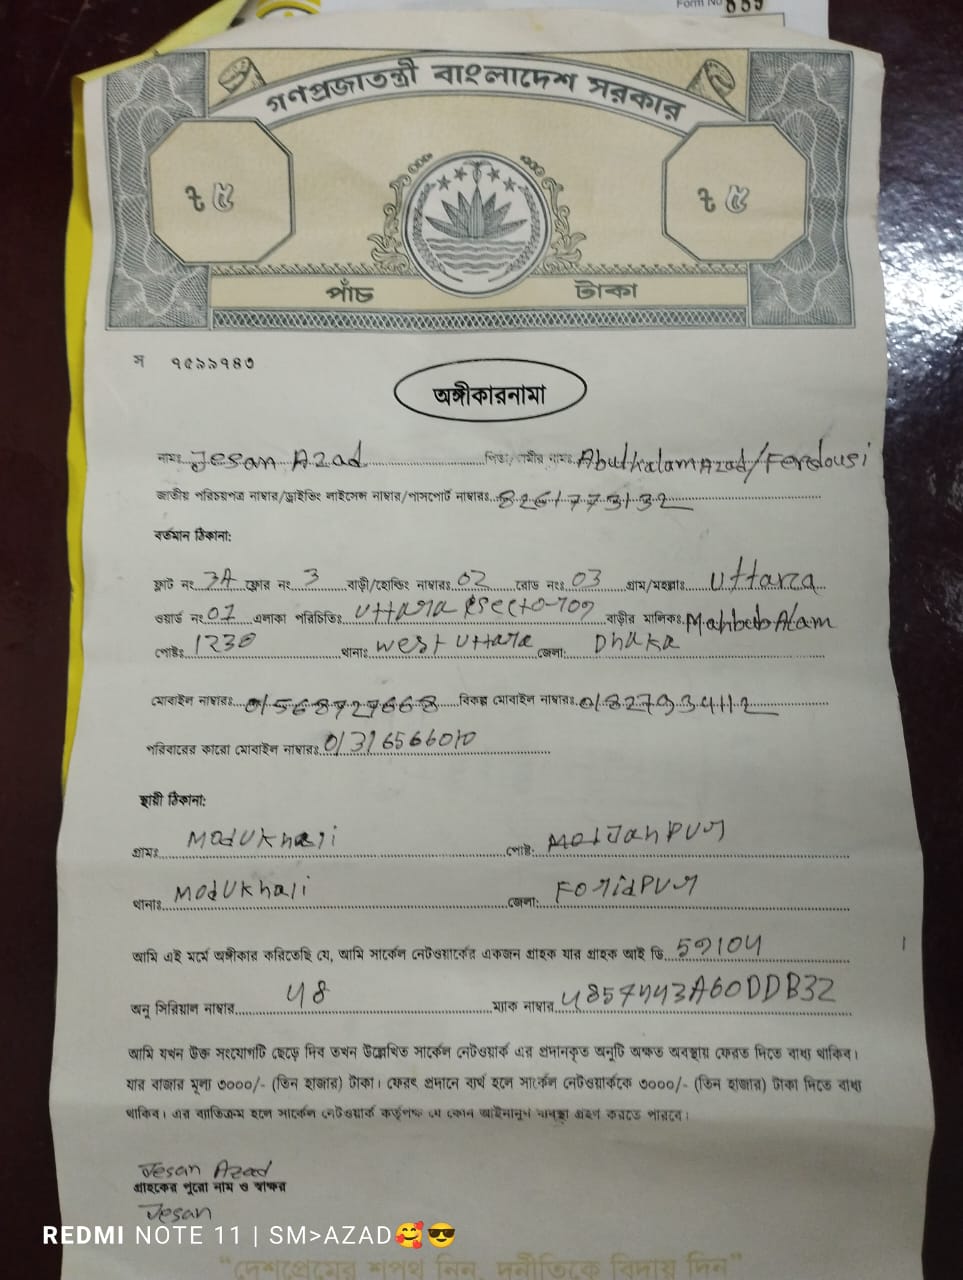 Form No 559
গণপ্রজাতন্ত্রী বাংলাদেশ সরকার
৳ ৫ ৳ ৫
পাঁচ টাকা
স ৭৫৯৯৭৪৩
অঙ্গীকারনামা
নামঃ Jesan Azad পিতা/স্বামীর নামঃ Abulkalam Azad/Ferdousi
জাতীয় পরিচয়পত্র নাম্বার/ড্রাইভিং লাইসেন্স নাম্বার/পাসপোর্ট নাম্বারঃ 8261773132
বর্তমান ঠিকানা:
ফ্লাট নং 3A ফ্লোর নং 3 বাড়ী/হোল্ডিং নাম্বারঃ 02 রোড নংঃ 03 গ্রাম/মহল্লাঃ Uttara
ওয়ার্ড নং 01 এলাকা পরিচিতিঃ Uttara বাড়ীর মালিকঃ Mahbub Alam
পোষ্টঃ 1230 থানাঃ West Uttara জেলা: Dhaka
মোবাইল নাম্বারঃ বিকল্প মোবাইল নাম্বারঃ
পরিবারের কারো মোবাইল নাম্বারঃ
স্থায়ী ঠিকানা:
গ্রামঃ Modukhali পোষ্ট:
থানাঃ Modukhali জেলা: Foridpur
আমি এই মর্মে অঙ্গীকার করিতেছি যে, আমি সার্কেল নেটওয়ার্কের একজন গ্রাহক যার গ্রাহক আই ডি 59104
অনু সিরিয়াল নাম্বার 48 ম্যাক নাম্বার
আমি যখন উক্ত সংযোগটি ছেড়ে দিব তখন উল্লেখিত সার্কেল নেটওয়ার্ক এর প্রদানকৃত অনুটি অক্ষত অবস্থায় ফেরত দিতে বাধ্য থাকিব।
যার বাজার মূল্য ৩০০০/- (তিন হাজার) টাকা। ফেরৎ প্রদানে ব্যর্থ হলে সার্কেল নেটওয়ার্ককে ৩০০০/- (তিন হাজার) টাকা দিতে বাধ্য
থাকিব। এর ব্যতিক্রম হলে সার্কেল নেটওয়ার্ক কর্তৃপক্ষ যে কোন আইনানুগ ব্যবস্থা গ্রহণ করতে পারবে।
Jesan Azad
গ্রাহকের পুরো নাম ও স্বাক্ষর
Jesan
REDMI NOTE 11 | SM>AZAD🥰😎
“দেশপ্রেমের শপথ নিন, দুর্নীতিকে বিদায় দিন”